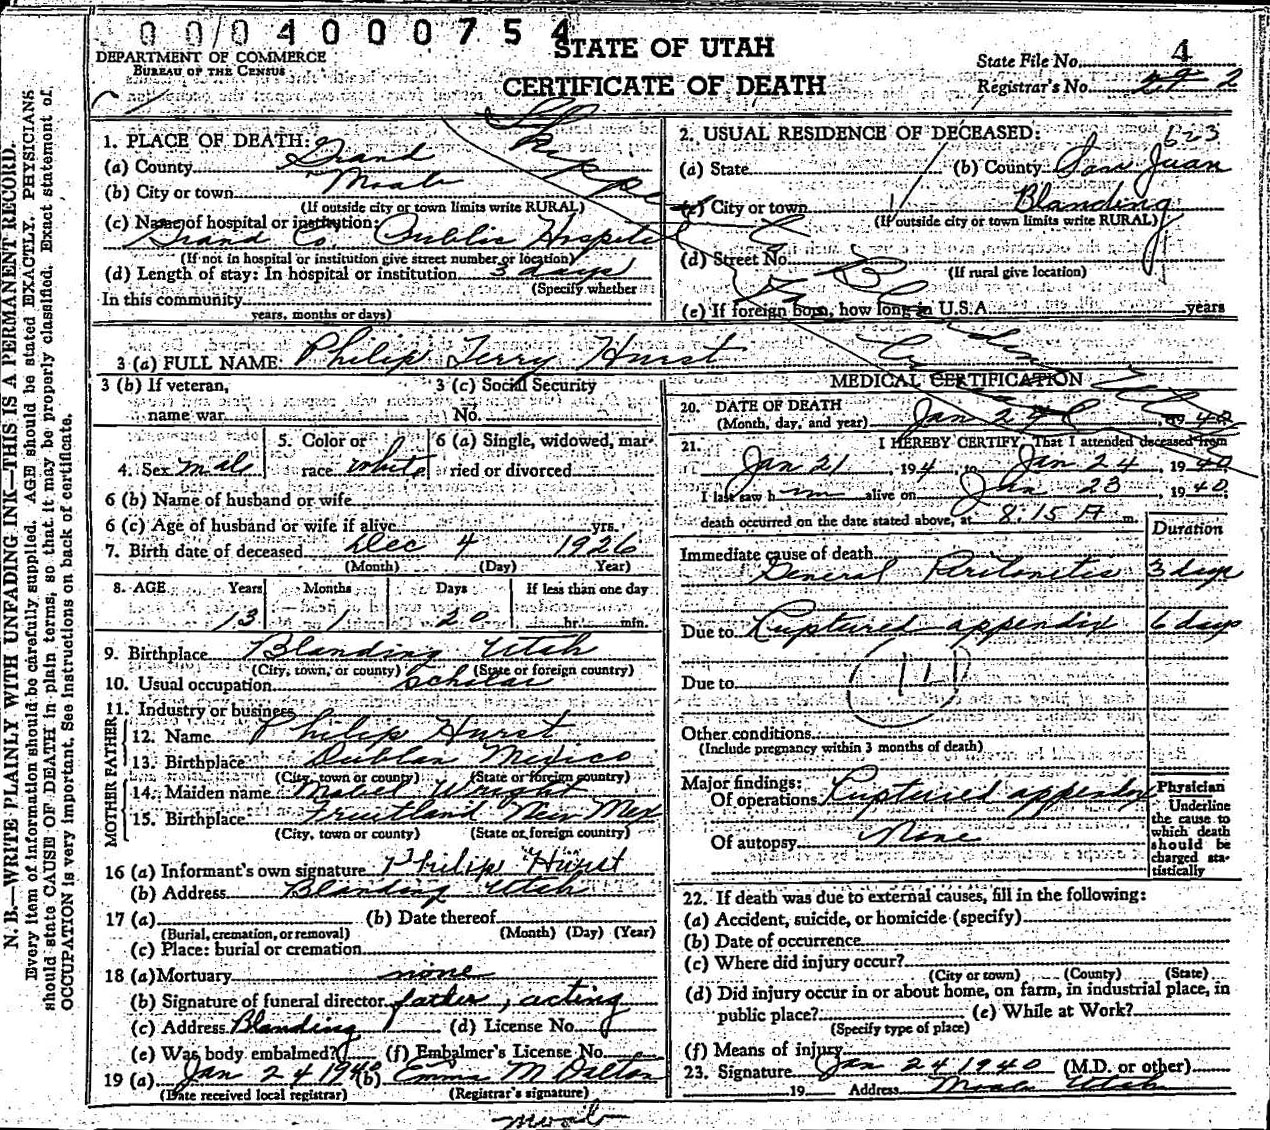 00/04000754
STATE OF UTAH
CERTIFICATE OF DEATH
DEPARTMENT OF COMMERCE
BUREAU OF THE CENSUS
State File No. 4
Registrar's No. 2
N. B.—WRITE PLAINLY WITH UNFADING INK—THIS IS A PERMANENT RECORD.
Every item of information should be carefully supplied. AGE should be stated EXACTLY. PHYSICIANS
should state CAUSE OF DEATH in plain terms, so that it may be properly classified. Exact statement of
OCCUPATION is very important. See instructions on back of certificate.
1. PLACE OF DEATH:
(a) County Grand
(b) City or town Moab
(If outside city or town limits write RURAL)
(c) Name of hospital or institution:
Grand Co. Public Hospital
(If not in hospital or institution give street number or location)
(d) Length of stay: In hospital or institution 3 days
(Specify whether
In this community
years, months or days)
2. USUAL RESIDENCE OF DECEASED:
(a) State (b) County San Juan
(c) City or town Blanding
(If outside city or town limits write RURAL)
(d) Street No.
(If rural give location)
(e) If foreign born, how long in U.S.A. years
3 (a) FULL NAME: Philip Terry Hurst
3 (b) If veteran,
name war
3 (c) Social Security
No.
4. Sex male
5. Color or
race white
6 (a) Single, widowed, mar-
ried or divorced
6 (b) Name of husband or wife
6 (c) Age of husband or wife if alive yrs.
7. Birth date of deceased Dec 4 1926
(Month) (Day) Year)
8. AGE Years Months Days If less than one day
13 1 20 hr. min.
9. Birthplace Blanding Utah
(City, town, or county) (State or foreign country)
10. Usual occupation scholar
11. Industry or business
FATHER
12. Name Philip Hurst
13. Birthplace Dublan Mexico
(City, town or county) (State or foreign country)
MOTHER
14. Maiden name Mabel Wright
15. Birthplace Fruitland New Mex
(City, town or county) (State or foreign country)
16 (a) Informant's own signature Philip Hurst
(b) Address Blanding Utah
17 (a) (b) Date thereof
(Burial, cremation, or removal) (Month) (Day) (Year)
(c) Place: burial or cremation
18 (a) Mortuary none
(b) Signature of funeral director father, acting
(c) Address Blanding (d) License No.
(e) Was body embalmed? (f) Embalmer's License No.
19 (a) Jan 24 1940 (b) Emma M Dalton
(Date received local registrar) (Registrar's signature)
Moab
MEDICAL CERTIFICATION
20. DATE OF DEATH
(Month, day, and year) Jan 24 1940
21. I HEREBY CERTIFY, That I attended deceased from
Jan 21, 194, to Jan 24, 1940
I last saw him alive on Jan 23, 1940;
death occurred on the date stated above, at 8:15 A m.
Duration
Immediate cause of death
General Peritonitis 3 days
Due to Ruptured appendix 6 days
Due to
Other conditions
(Include pregnancy within 3 months of death)
Major findings:
Of operations Ruptured appendix
Of autopsy None
Physician
Underline
the cause to
which death
should be
charged sta-
tistically
22. If death was due to external causes, fill in the following:
(a) Accident, suicide, or homicide (specify)
(b) Date of occurrence
(c) Where did injury occur?
(City or town) (County) (State)
(d) Did injury occur in or about home, on farm, in industrial place, in
public place? (e) While at Work?
(Specify type of place)
(f) Means of injury
23. Signature Jan 24 1940 (M.D. or other)
19 Address Moab Utah